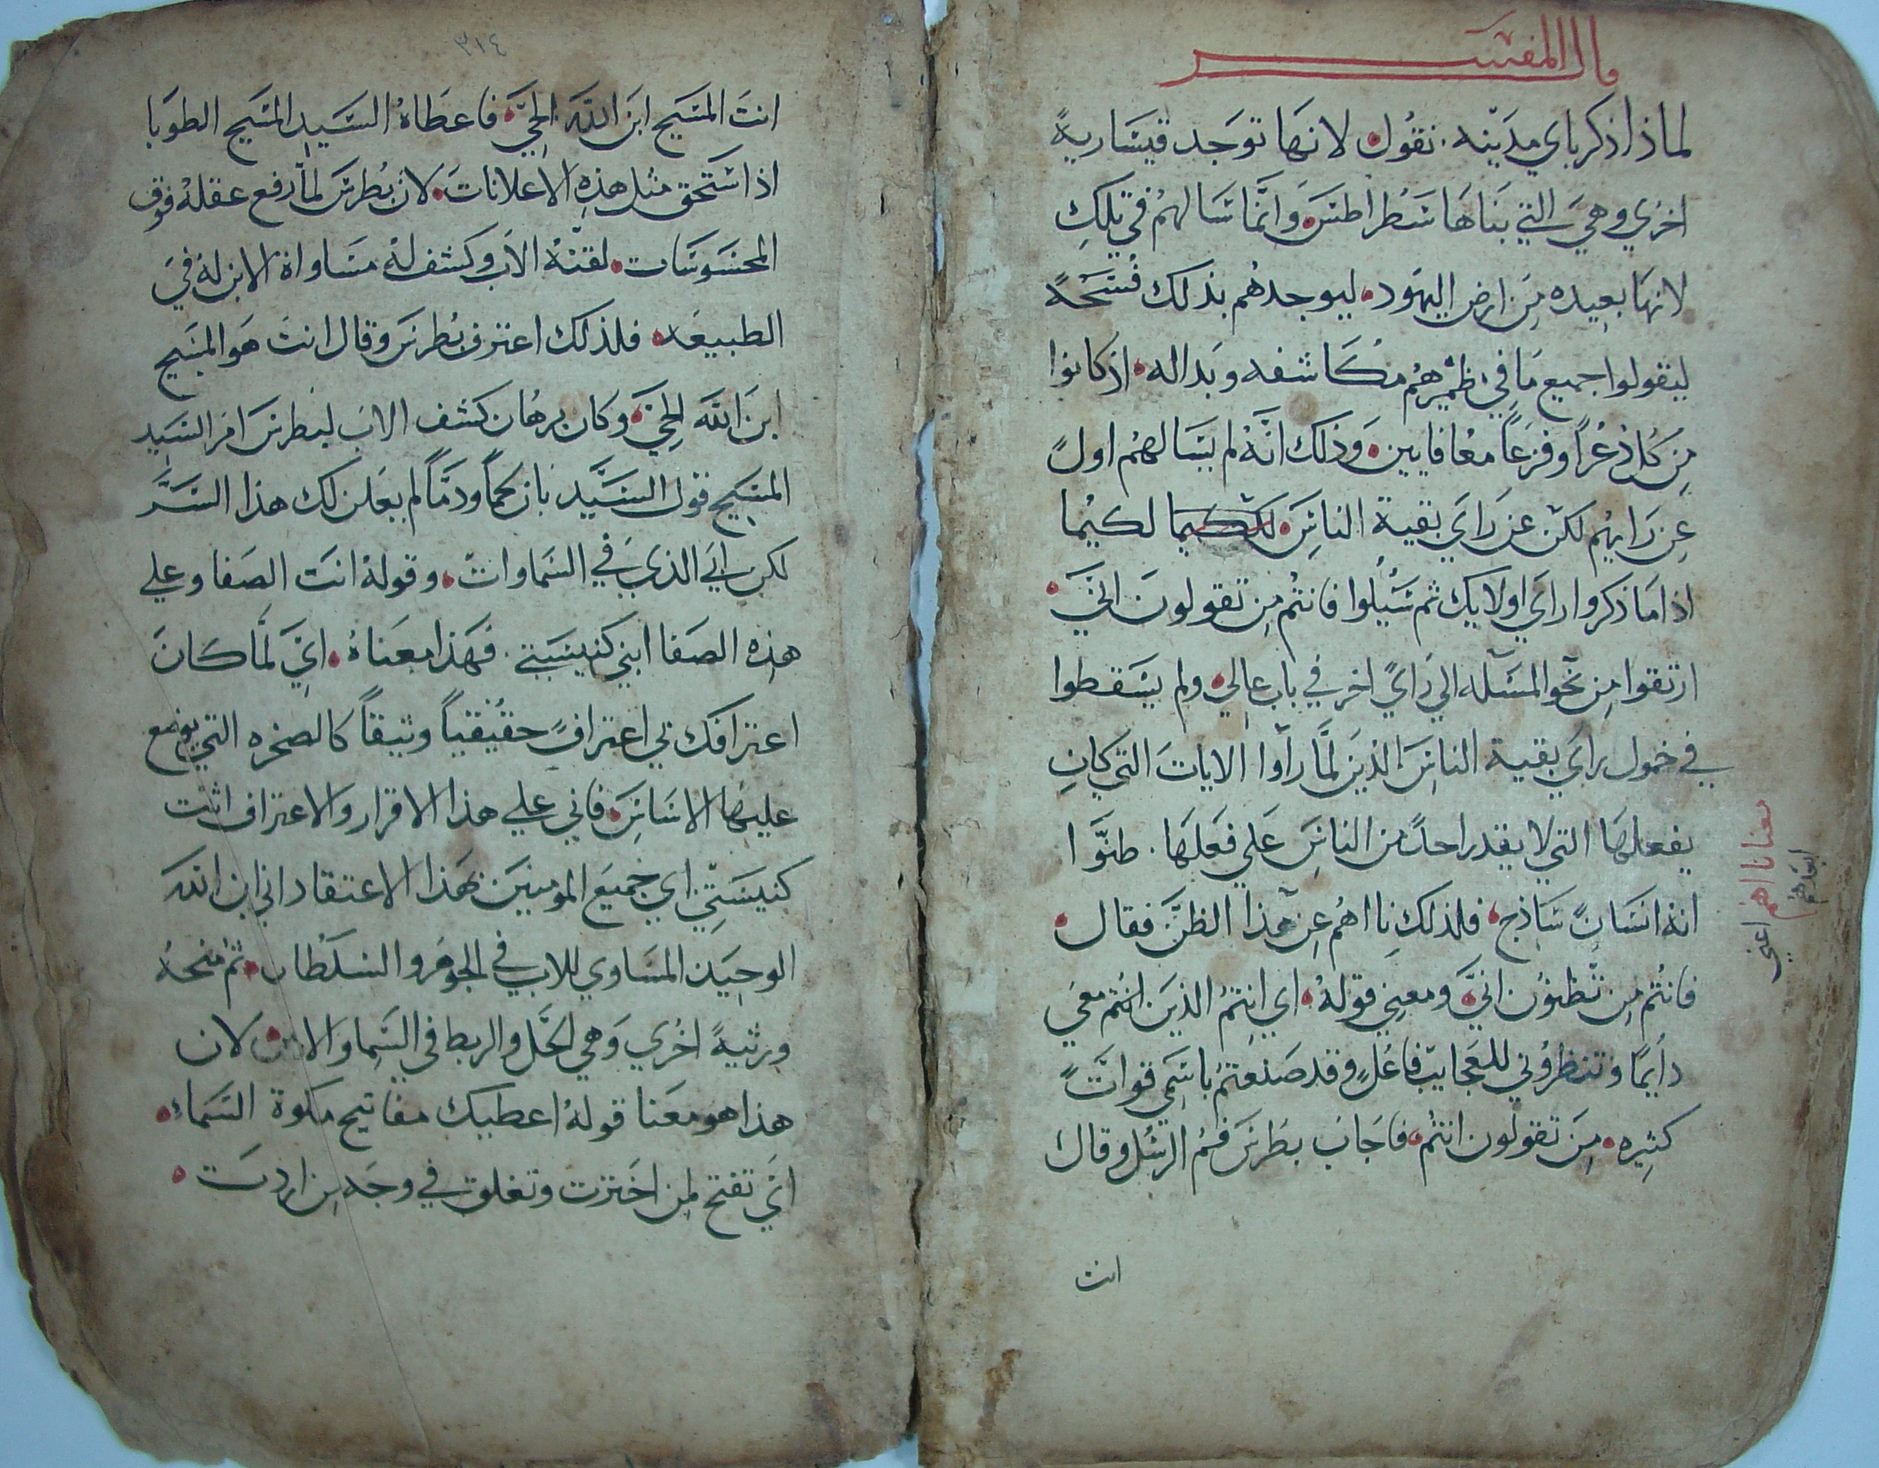 قال المفسر
لماذا ذكر باي مدينه. نقول لانها توجد قيسارية
اخري وهي التي بناها سطراطس وانما سالهم في تلك
لانها بعيده من ارض اليهود ليوجدهم بذلك فسحة
ليقولوا جميع ما في ظميرهم مكاشفه وبداله اذ كانوا
من كل ذعراً وفزعاً معافايين وذلك انه لم يسالهم اولً
عن رايهم لكن عن راي بقية الناس لكيما لكيما
اذا ما ذكروا راي اولايك ثم سُيلوا فانتم من تقولون اني
ارتقوا من نحو المسله الي رايً اخر في باب عالي ولم يسقطوا
في خمول براي بقية الناس الذين لما راوا الايات التي كان
يفعلها التي لا يقدر احدً من الناس علي فعلها. ظنوا
انه انسانً ساذج فلذلك نااهم عن هذا الظن فقال
فانتم من تظنون اني ومعني قوله اي انتم الذين انتم معي
دايمًا وتنظروني للعجايب فاعلٍ وقد صنعتم باسمي قواتً
كثيره من تقولون انتم فاجاب بطرس فم الرسل وقال
انت
معنا نااهم اعني
ابعدهم
٣١٤
انت المسيح ابن الله الحي فاعطاه السيد المسيح الطوبا
اذ استحق مثل هذه الاعلانات لان بطرس لما رفع عقله فوق
المحسوسات لقنه الاب وكشف له مساواة الابن له في
الطبيعه فلذلك اعترف بطرس وقال انت هو المسيح
ابن الله الحي وكان برهان كشف الاب لبطرس امر السيد
المسيح قول السيد بان لحماً ودماً لم يعلن لك هذا السر
لكن ابي الذي في السماوات وقوله انت الصفا وعلي
هذه الصفا ابني كنيستي. فهذا معناه اي لما كان
اعترافك بي اعترافً حقيقياً وثيقاً كالصخره التي يوضع
عليها الاساس فاني علي هذا الاقرار والاعتراف اثبت
كنيستي اي جميع المومنين بهذا الاعتقاد اني ابن الله
الوحيد المساوي للاب في الجوهر والسلطان ثم منحه
ورتبةً اخري وهي الحل والربط في السما والارض لان
هذا هو معنا قوله اعطيك مفاتيح ملكوة السماء
اي تفتح لمن اخترت وتغلق في وجه من اردت